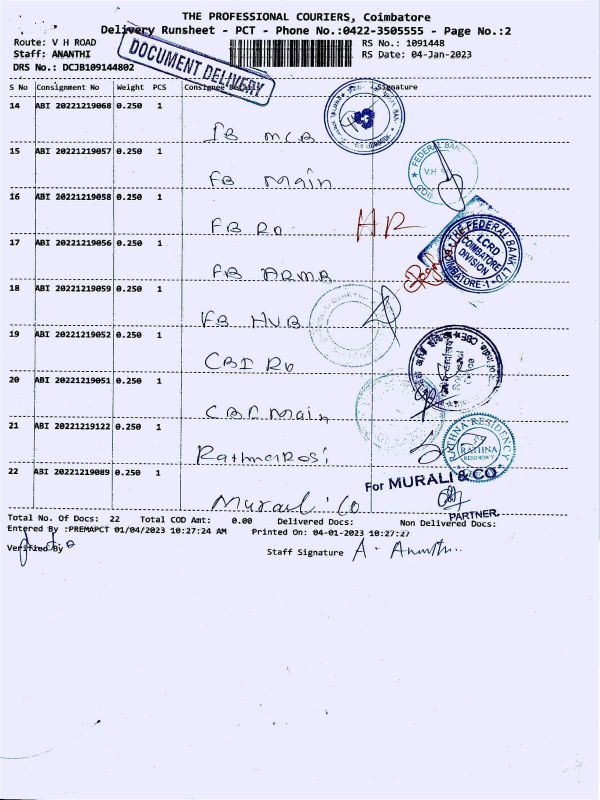 THE PROFESSIONAL COURIERS, Coimbatore
Delivery Runsheet - PCT - Phone No.:0422-3505555 - Page No.:2
Route: V H ROAD
RS No.: 1091448
Staff: ANANTHI
RS Date: 04-Jan-2023
DRS No.: DCJB109144802
DOCUMENT DELIVERY
S No Consignment No Weight PCS Consignee Details Signature
14 ABI 20221219068 0.250 1
IB MCB
15 ABI 20221219057 0.250 1
FB Main
FEDERAL BANK
V.H
16 ABI 20221219058 0.250 1
FB Ro
HR
17 ABI 20221219056 0.250 1
THE FEDERAL BANK LTD
LCRD
COIMBATORE
DIVISION
COIMBATORE-1
FB ARMB
18 ABI 20221219059 0.250 1
FB HUB
19 ABI 20221219052 0.250 1
CBI Ro
20 ABI 20221219051 0.250 1
CBI Main
21 ABI 20221219122 0.250 1
RATHNA RESIDENCY
RATHNA
RESIDENCY
22 ABI 20221219089 0.250 1
For MURALI & CO
Murali Co
PARTNER
Total No. Of Docs: 22 Total COD Amt: 0.00 Delivered Docs: Non Delivered Docs:
Entered By :PREMAPCT 01/04/2023 10:27:24 AM Printed On: 04-01-2023 10:27:27
Verified By
Staff Signature A. Ananthi